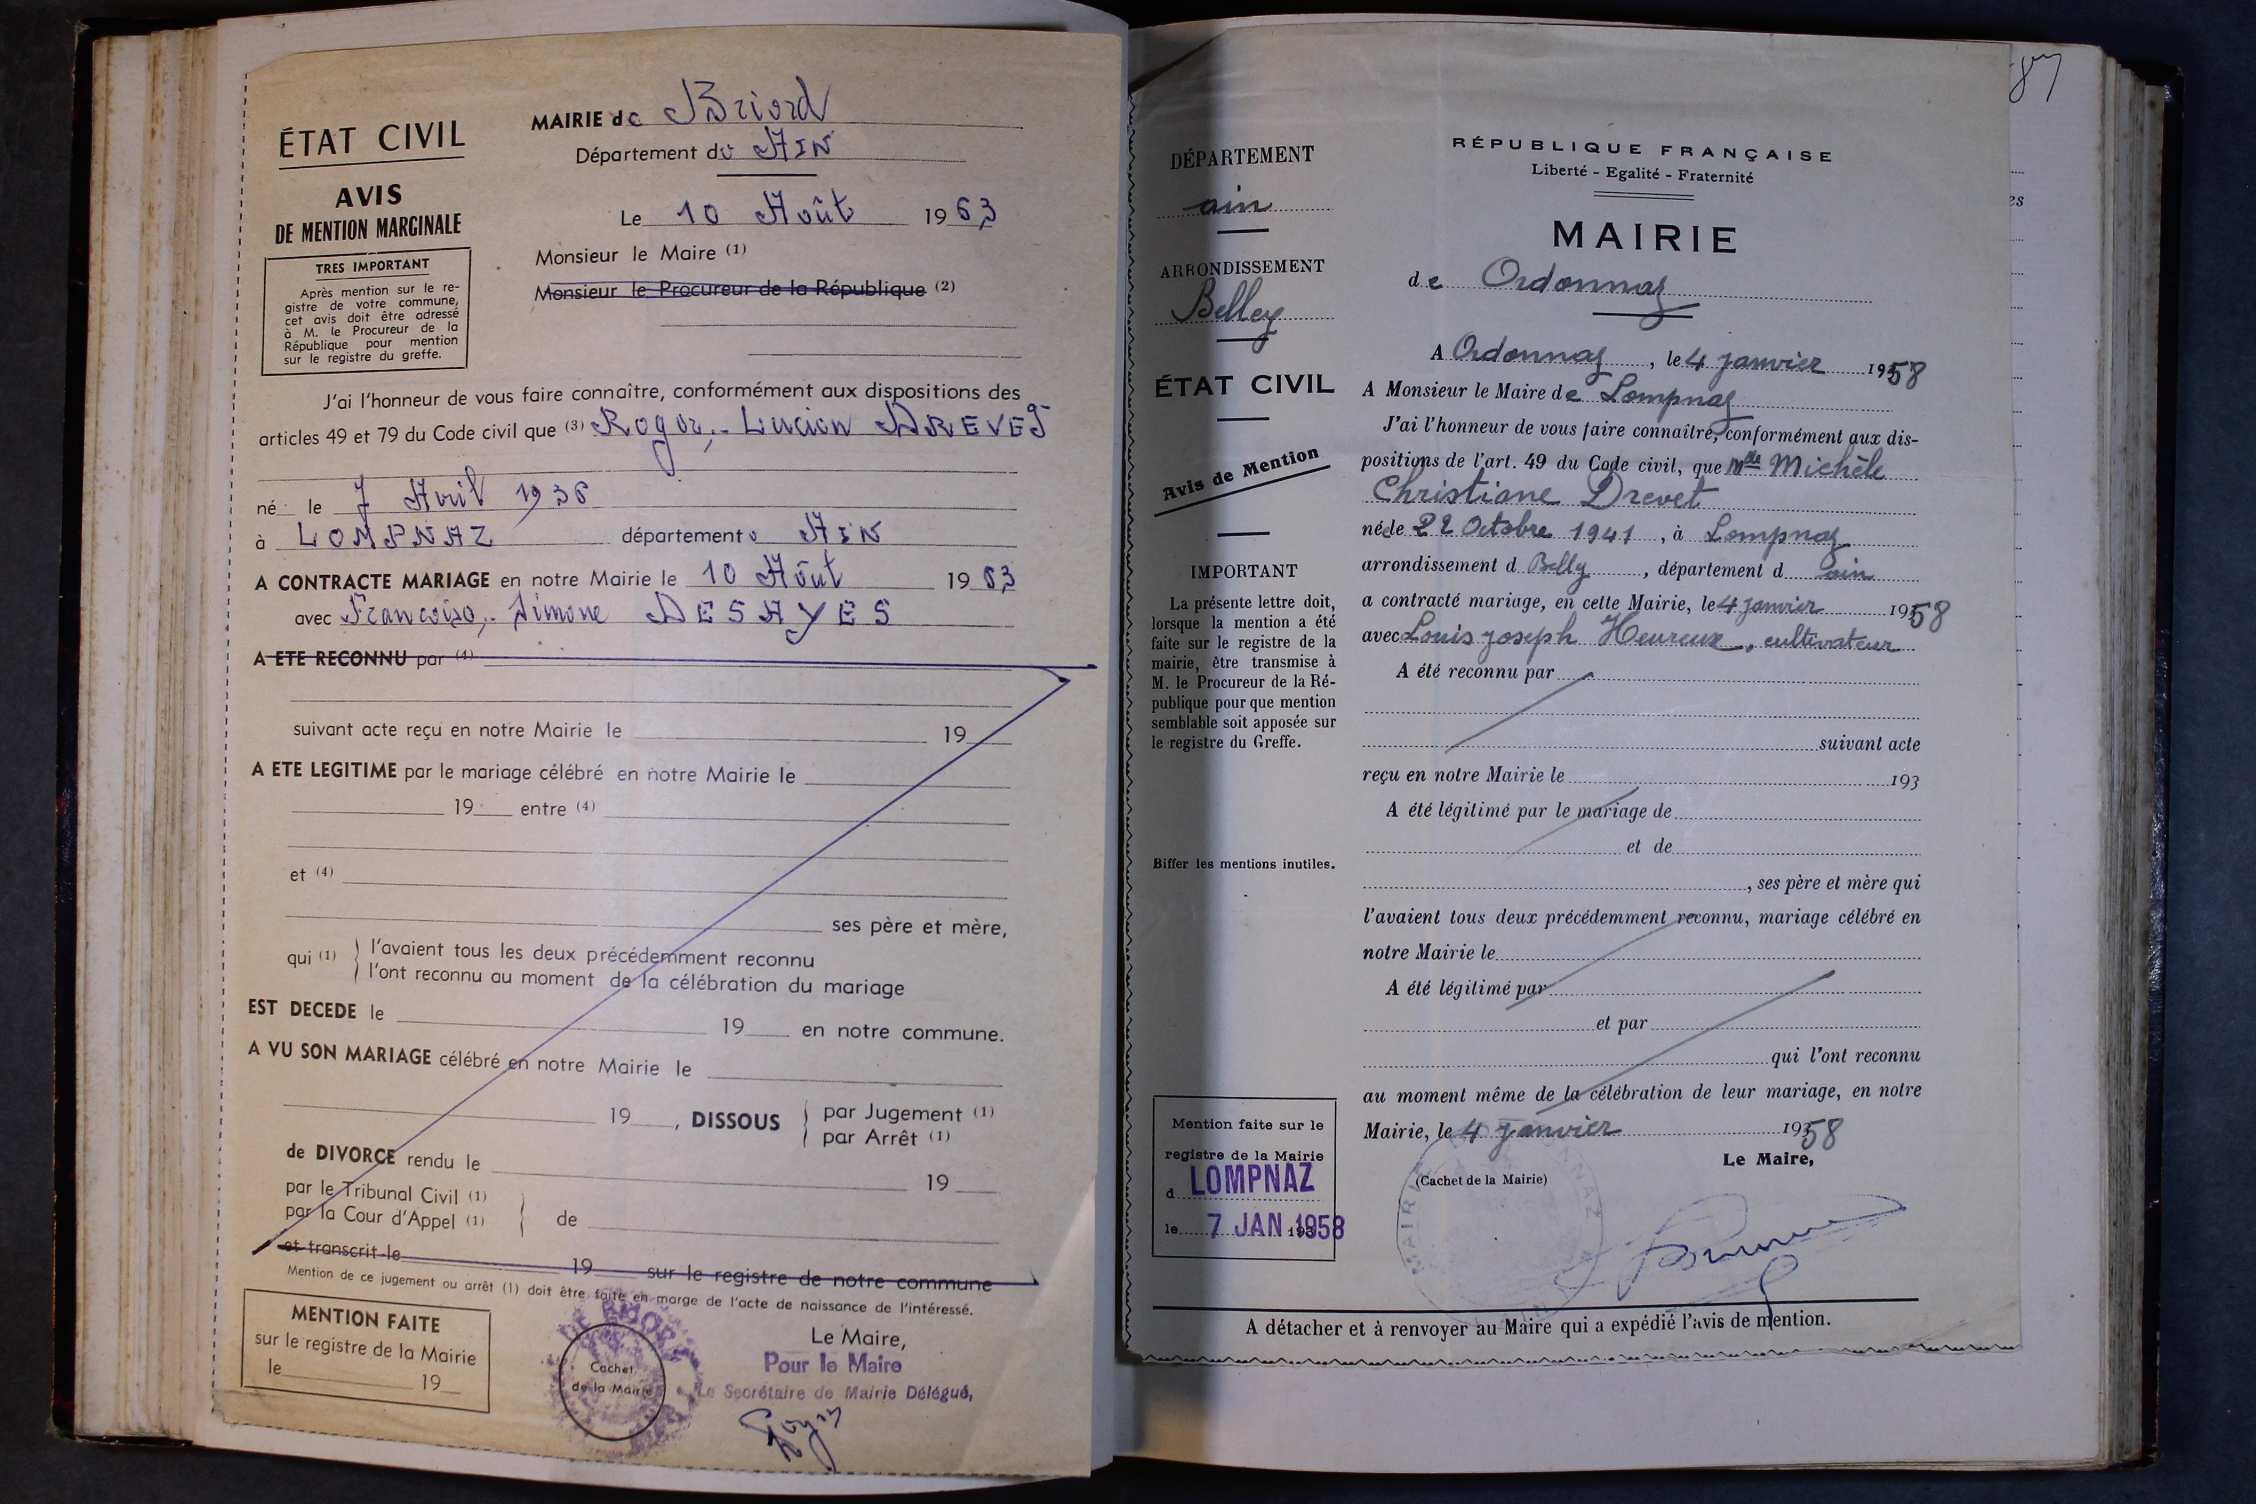 ÉTAT CIVIL
AVIS
DE MENTION MARGINALE
TRES IMPORTANT
Après mention sur le re-
gistre de votre commune,
cet avis doit être adressé
à M. le Procureur de la
République pour mention
sur le registre du greffe.
MAIRIE de Briord
Département du AIN
Le 10 Août 1963
Monsieur le Maire (1)
Monsieur le Procureur de la République (2)
J'ai l'honneur de vous faire connaître, conformément aux dispositions des
articles 49 et 79 du Code civil que (3) Roger,- Lucien DREVET
né le 7 Avril 1936
à LOMPNAZ département AIN
A CONTRACTE MARIAGE en notre Mairie le 10 Août 1963
avec Françoise,- Simone DESAYES
A ETE RECONNU par (4)
suivant acte reçu en notre Mairie le 19
A ETE LEGITIME par le mariage célébré en notre Mairie le
19 entre (4)
et (4)
ses père et mère,
qui (1) l'avaient tous les deux précédemment reconnu
l'ont reconnu au moment de la célébration du mariage
EST DECEDE le 19 en notre commune.
A VU SON MARIAGE célébré en notre Mairie le
19 , DISSOUS par Jugement (1)
par Arrêt (1)
de DIVORCE rendu le 19
par le Tribunal Civil (1)
par la Cour d'Appel (1) de
et transcrit le 19 sur le registre de notre commune
Mention de ce jugement ou arrêt (1) doit être faite en marge de l'acte de naissance de l'intéressé.
MENTION FAITE
sur le registre de la Mairie
le 19
Cachet
de la Mairie
Le Maire,
Pour le Maire
Le Secrétaire de Mairie Délégué,
DÉPARTEMENT
ain
ARRONDISSEMENT
Belley
ÉTAT CIVIL
Avis de Mention
IMPORTANT
La présente lettre doit,
lorsque la mention a été
faite sur le registre de la
mairie, être transmise à
M. le Procureur de la Ré-
publique pour que mention
semblable soit apposée sur
le registre du Greffe.
Biffer les mentions inutiles.
Mention faite sur le
registre de la Mairie
d LOMPNAZ
le 7 JAN 1958
RÉPUBLIQUE FRANÇAISE
Liberté - Egalité - Fraternité
MAIRIE
de Ordonnaz
A Ordonnaz, le 4 janvier 1958
A Monsieur le Maire de Lompnaz
J'ai l'honneur de vous faire connaître, conformément aux dis-
positions de l'art. 49 du Code civil, que Mlle Michèle
Christiane Drevet
née le 22 Octobre 1941, à Lompnaz
arrondissement d Belly, département d ain
a contracté mariage, en cette Mairie, le 4 janvier 1958
avec Louis joseph Heureux, cultivateur
A été reconnu par
suivant acte
reçu en notre Mairie le 193
A été légitimé par le mariage de
et de
, ses père et mère qui
l'avaient tous deux précédemment reconnu, mariage célébré en
notre Mairie le
A été légitimé par
et par
qui l'ont reconnu
au moment même de la célébration de leur mariage, en notre
Mairie, le 4 janvier 1958
Le Maire,
(Cachet de la Mairie)
A détacher et à renvoyer au Maire qui a expédié l'avis de mention.